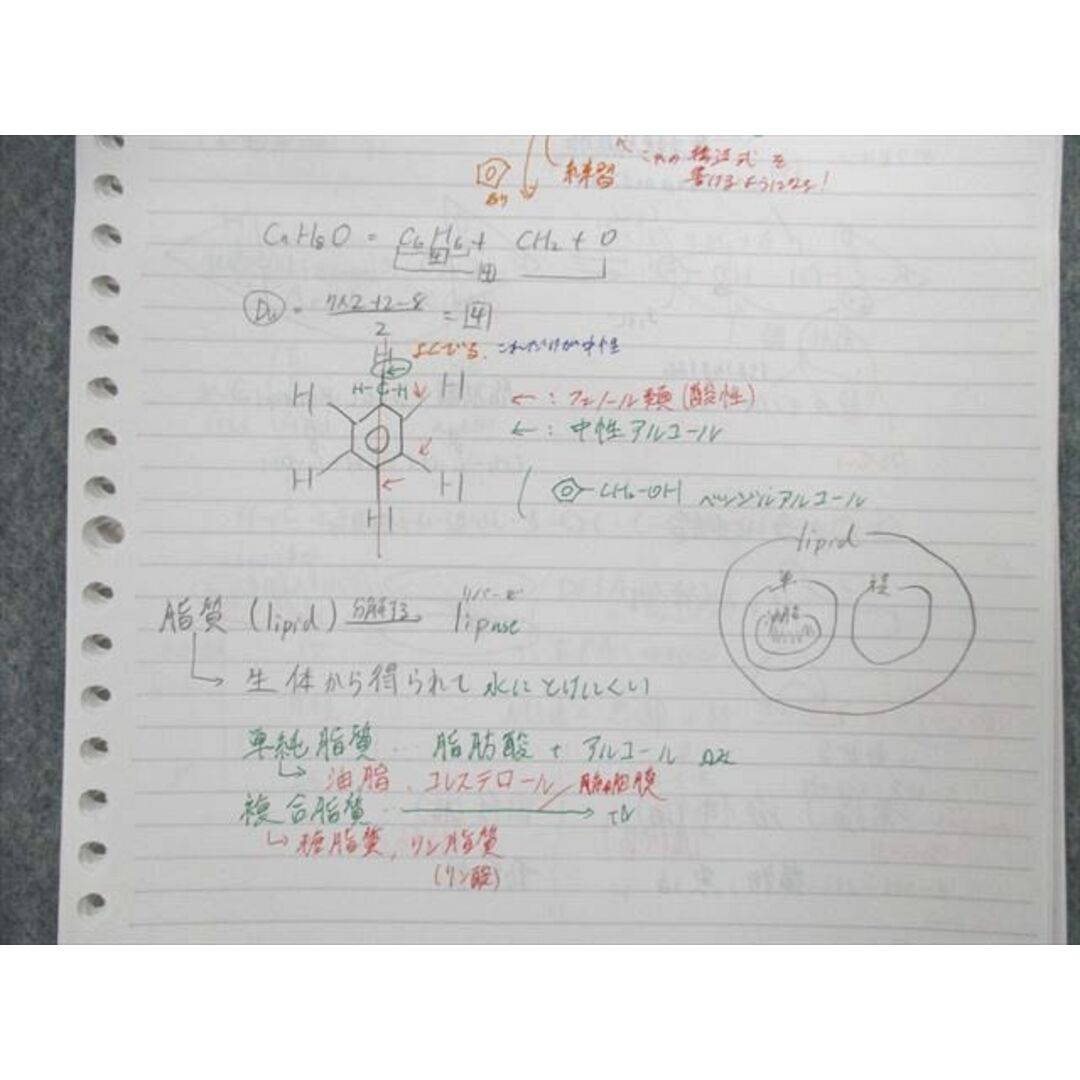 これの構造式を
練習 書けるようになる!
あり
C₇H₈O = C₆H₆ + CH₂ + O
4
4
Du = 7×2+2-8 / 2 = 4
よくでる。これだけが中性
H
H-C-H
H H
← : フェノール類(酸性)
← : 中性アルコール
H H
H
CH₂-OH ベンジルアルコール
lipid
単 複
油脂
脂質(lipid) 分解する リパーゼ lipase
生体から得られて水にとけにくい
単純脂質… 脂肪酸 + アルコール のみ
油脂、コレステロール 細胞膜
複合脂質…
糖脂質、リン脂質
(リン酸)